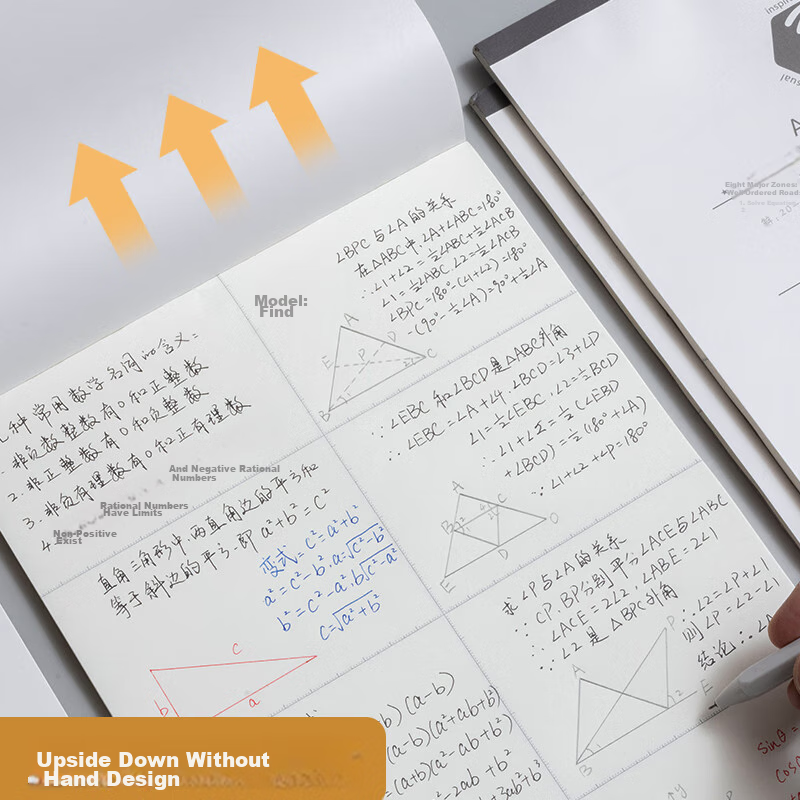 几种常用数学名词的含义:
1. 非负整数有0和正整数
2. 非正整数有0和负整数
3. 非负有理数有0和正有理数
4.
And Negative Rational
Numbers
Rational Numbers
Have Limits
Non-Positive
Exist
直角三角形中,两直角边的平方和
等于斜边的平方.即 a²+b²=c²
变式=c²=a²+b²
a²=c²-b². a=√c²-b²
b²=c²-a². b√c²-a²
c=√a²+b²
c
b
a
Model:
Find
∠BPC与∠A的关系
在△ABC中.∠A+∠ABC=180°
∴∠1+∠2=½∠ABC+½∠ACB
∠1=½∠ABC.∠2=½∠ACB
∠BPC=180°-(∠1+∠2)=180°
-(90°-½∠A)=90°+½∠A
A
E
D
P
C
B
∵∠EBC和∠BCD是△ABC外角
∴∠EBC=∠A+∠4.∠BCD=∠3+∠D
∠1=½∠EBC.∠2=½∠BCD
∴∠1+∠2=½(∠EBD
+∠BCD)=½(180°+∠A)
∵∠1+∠2+∠P=180°
A
B
C
O
D
E
求∠P与∠A的关系
∵CP.BP分别平分∠ACE与∠ABC
∴∠ACE=2∠2.∠ABE=2∠1
∵∠2是△BPC外角
∴∠2=∠P+∠1
则∠P=∠2-∠1
结论:∴∠A
A
P
B
1
2
E
b)(a-b)
(a-b)(a²+ab+b²)
(a+b)(a²-ab+b²)
²-2ab+b²
+3ab²+b³
sinθ=
cosθ
Eight Major Zones:
Well-Ordered Road
Upside Down Without
Hand Design